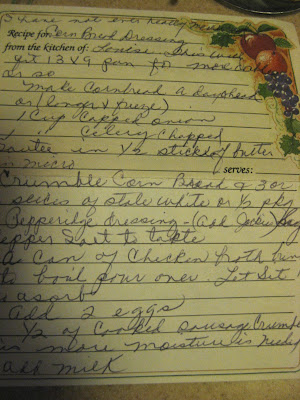 I have not ever really
Recipe for: Corn Bread Dressing
from the kitchen of: Louise
Get 13x9 pan for
or so
Make Cornbread a day ahead
or longer & freeze)
1 Cup Copped onion
" " Celery Chopped
Sautee in 1/2 stick of butter
in micro
serves:
Crumble Corn Bread & 3 or
slices of stale white or 1/2 pkg
Pepperidge dressing - (Ask Jackie)
epper Salt to taste
a can of Chicken broth
to boil pour over. Let Set
asorb
add 2 eggs
1/2 of Cooked Sausage Crumble
more moisture is
add milk